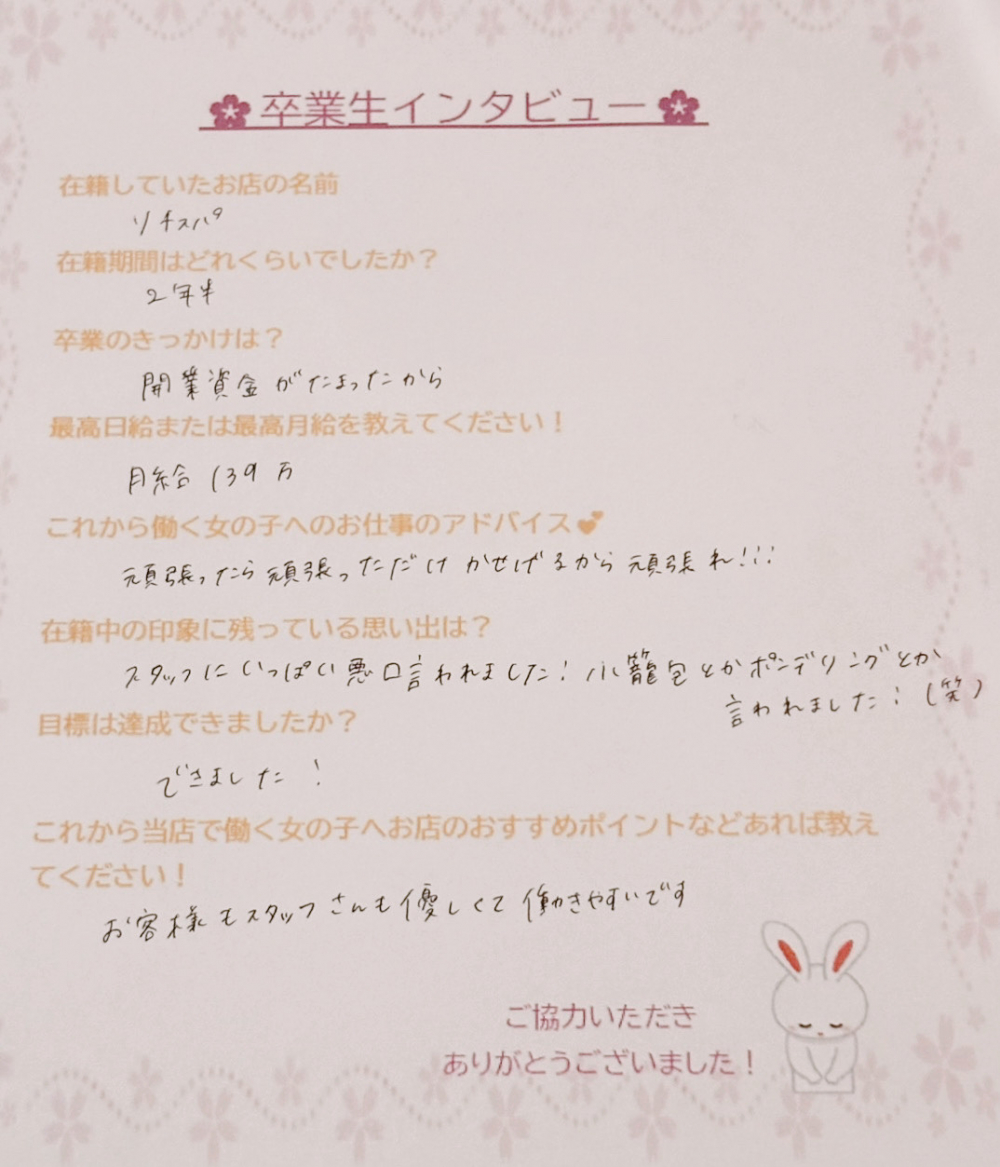 卒業生インタビュー
在籍していたお店の名前
リチスパ
在籍期間はどれくらいでしたか？
2年半
卒業のきっかけは？
開業資金がたまったから
最高日給または最高月給を教えてください！
月給 139万
これから働く女の子へのお仕事のアドバイス💕
頑張ったら頑張っただけかせげるから頑張れ!!!
在籍中の印象に残っている思い出は？
スタッフにいっぱい悪口言われました！小籠包とかポンデリングとか
言われました！(笑)
目標は達成できましたか？
できました！
これから当店で働く女の子へお店のおすすめポイントなどあれば教え
てください！
お客様もスタッフさんも優しくて働きやすいです
ご協力いただき
ありがとうございました！